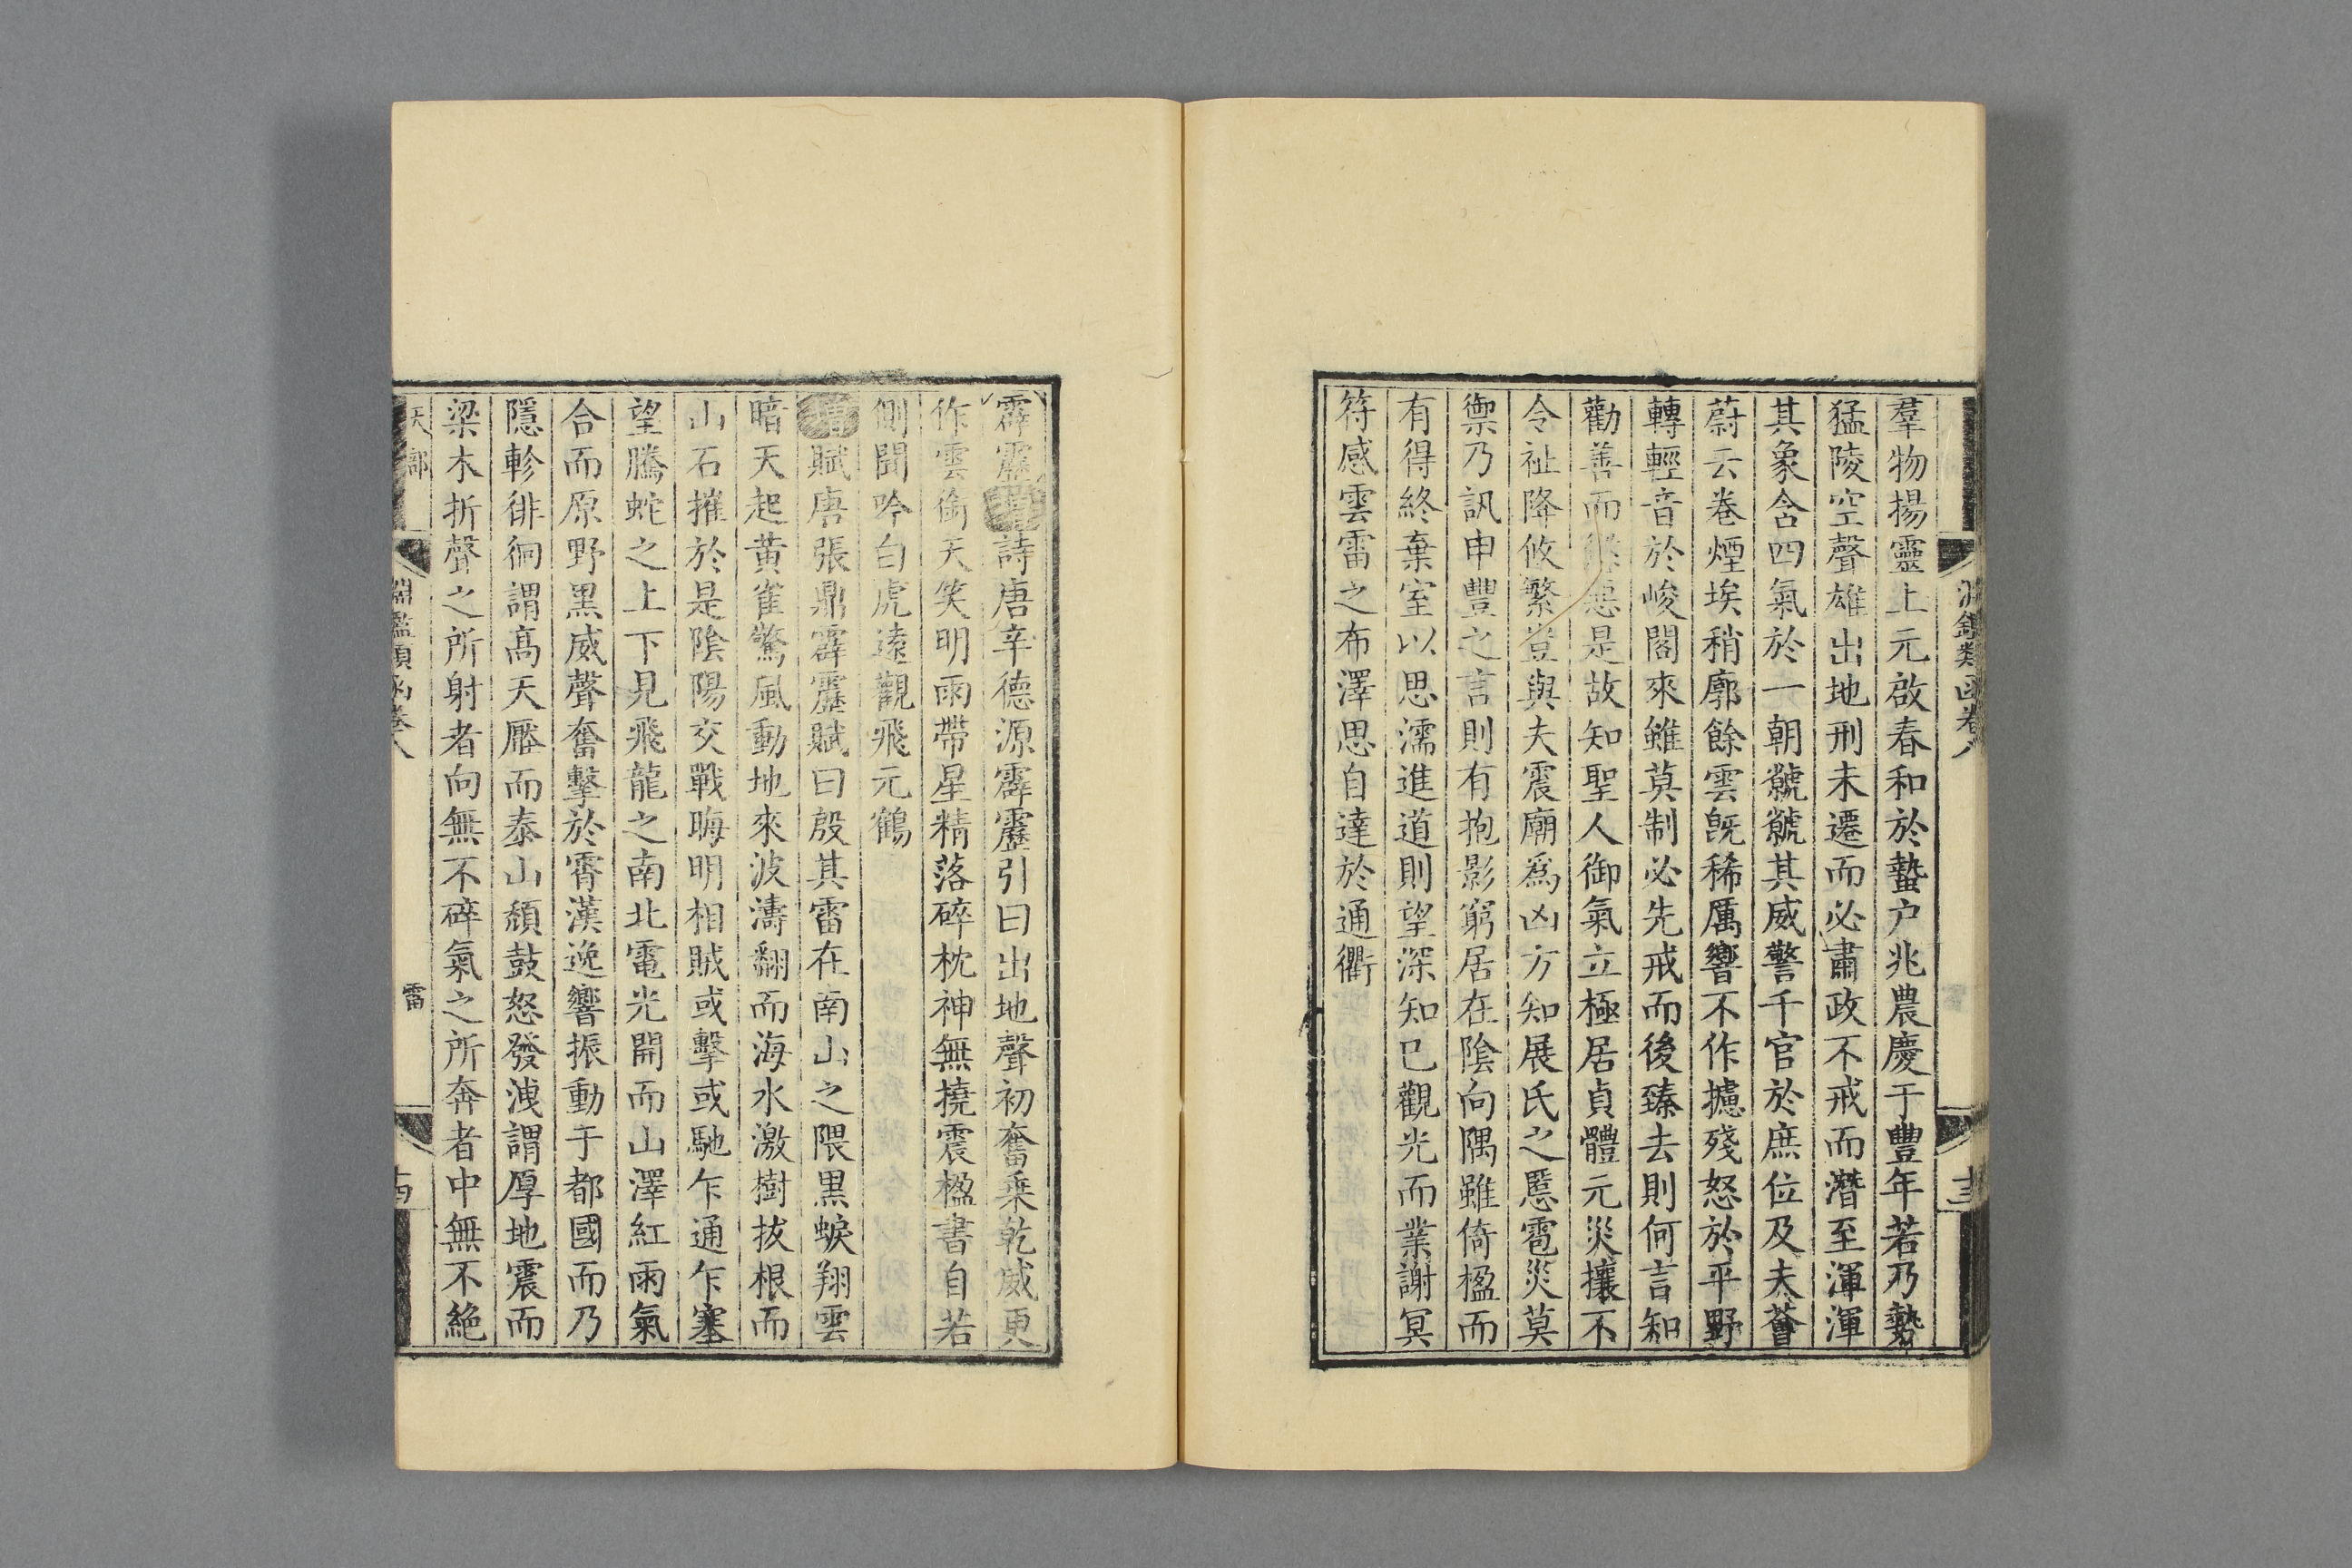 淵鑑類函卷八
十三
羣物揚靈上元啟春和於蟄户兆農慶于豐年若乃勢
猛陵空聲雄出地刑未遷而必肅政不戒而潛至渾渾
其象含四氣於一朝虩虩其威警千官於庶位及夫薈
蔚云卷煙埃稍廓餘雲旣稀厲響不作攄殘怒於平野
轉輕音於峻閣來雖莫制必先戒而後臻去則何言知
勸善而懲惡是故知聖人御氣立極居貞體元災攘不
令祉降攸繁豈與夫震廟爲凶方知展氏之慝雹災莫
禦乃訊申豐之言則有抱影窮居在陰向隅雖倚楹而
有得終棄室以思濡進道則望深知已觀光而業謝冥
符感雲雷之布澤思自達於通衢
霹靂詩唐辛德源霹靂引曰出地聲初奮乘乾威更
作雲銜天笑明雨帶星精落碎枕神無撓震楹書自若
側聞吟白虎遠觀飛元鶴
賦唐張鼎霹靂賦曰殷其雷在南山之隈黒蜧翔雲
暗天起黄雀驚風動地來波濤翻而海水激樹拔根而
山石摧於是陰陽交戰晦明相賊或擊或馳乍通乍塞
望騰蛇之上下見飛龍之南北電光開而山澤紅雨氣
合而原野黒威聲奮擊於霄漢逸響振動于都國而乃
隱軫徘徊謂高天壓而泰山頽鼓怒發洩謂厚地震而
梁木折聲之所射者向無不碎氣之所奔者中無不絶
天部
淵鑑類函卷八
雷
十四